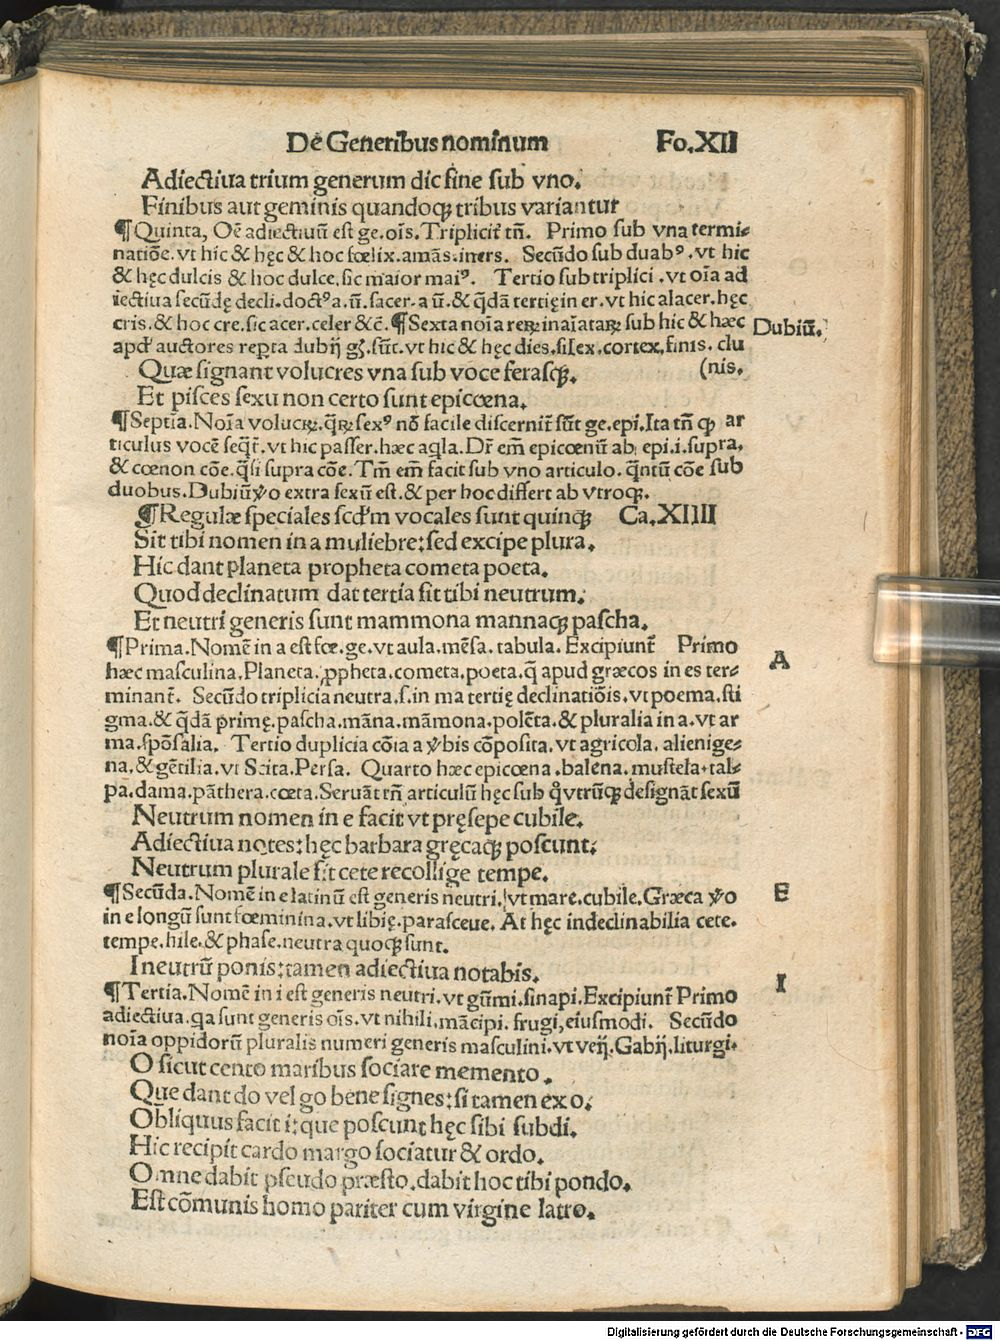 De Generibus nominum Fo.XII
Adiectiua trium generum dic fine sub vno.
Finibus aut geminis quandoqꝫ tribus variantur
¶Quinta, Oē adiectiuū est ge.oīs. Triplicit̄ tn̄. Primo sub vna termi-
natiōe.vt hic & hęc & hoc fœlix.amās.iners. Secūdo sub duabꝰ.vt hic
& hęc dulcis & hoc dulce.sic maior maiꝰ. Tertio sub triplici.vt oīa ad
iectiua secūdę decli.doctꝰa.ū.sacer.a ū.& q̄dā tertię in er.vt hic alacer.hęc
cris.& hoc cre.sic acer.celer &c̄.¶Sexta noīa reꝝ inaīataꝝ sub hic & hæc Dubiū.
apđ auctores repta dubij gn̄.sūt.vt hic & hęc dies.silex.cortex.finis.clu
Quæ signant volucres vna sub voce ferasqꝫ. (nis.
Et pisces sexu non certo sunt epicœna.
¶Septīa.Noīa volucꝝ.q̄ꝝ sexꝰ nō facile discernit̄ sūt ge.epi.Ita tn̄ ꝙ ar
ticulus vocē seq̄t̄.vt hic passer.hæc aq̄la.Dr̄ em̄ epicœnū ab epi.i.supra.
& cœnon cōe.q̄si supra cōe.Tm̄ em̄ facit sub vno articulo.q̄ntū cōe sub
duobus.Dubiū ꝟo extra sexū est.& per hoc differt ab vtroqꝫ.
¶Regulæ speciales scđm vocales sunt quinqꝫ Ca.XIIII
Sit tibi nomen in a muliebre:sed excipe plura.
Hic dant planeta propheta cometa poeta.
Quod declinatum dat tertia sit tibi neutrum.
Et neutri generis sunt mammona mannaqꝫ pascha.
¶Prima.Nomē in a est fœ.ge.vt aula.mēsa.tabula.Excipiunt̄ Primo A
hæc masculina.Planeta.ꝓpheta.cometa.poeta.q̄ apud græcos in es ter-
minant̄. Secūdo triplicia neutra.s.in ma tertię declinatiōis.vt poema.sti
gma.& q̄dā primę.pascha.māna.māmona.polēta.& pluralia in a.vt ar
ma.spōsalia. Tertio duplicia cōia a ꝟbis cōposita.vt agricola.alienige-
na.& gētilia.vt Scita.Persa. Quarto hæc epicœna.balena.mustela.tal-
pa.dama.pāthera.cœta.Seruāt tn̄ articulū hęc sub q̊ vtrūqꝫ designāt sexū
Neutrum nomen in e facit vt pręsepe cubile.
Adiectiua notes:hęc barbara gręcaqꝫ poscunt.
Neutrum plurale sit cete recollige tempe.
¶Secūda.Nomē in e latinū est generis neutri.vt mare.cubile.Græca ꝟo E
in e longū sunt fœminina.vt libię.parasceue. At hęc indeclinabilia cete.
tempe.hile.& phase.neutra quoqꝫ sunt.
I neutrū ponis:tamen adiectiua notabis.
¶Tertia.Nomē in i est generis neutri.vt gūmi.sinapi.Excipiunt̄ Primo I
adiectiua.qa sunt generis oīs.vt nihili.mācipi.frugi,eiusmodi. Secūdo
noīa oppidorū pluralis numeri generis masculini.vt veij.Gabij.liturgi.
O sicut cento maribus sociare memento.
Que dant do vel go bene signes:si tamen ex o.
Obliquus facit i:que poscunt hęc sibi subdi.
Hic recipit cardo margo sociatur & ordo.
Omne dabit pseudo præsto.dabit hoc tibi pondo.
Est cōmunis homo pariter cum virgine latro.
Digitalisierung gefördert durch die Deutsche Forschungsgemeinschaft - DFG